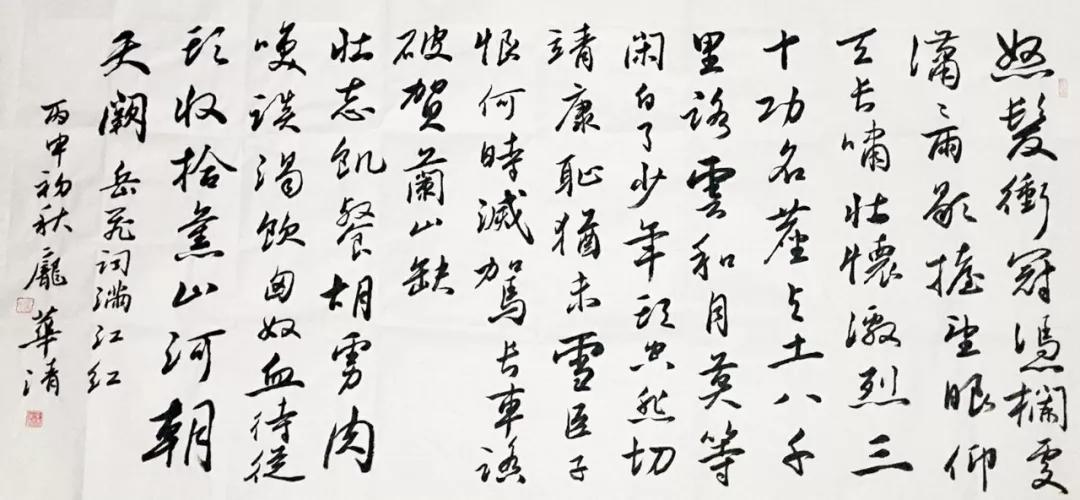 怒髮衝冠馮欄處
瀟〻雨歇擡望眼仰
天長嘯壯懷激烈三
十功名塵与土八千
里路雲和月莫等
閑白了少年頭空悲切
靖康恥猶未雪臣子
恨何時滅駕長車踏
破賀蘭山缺
壯志飢餐胡虜肉
笑談渴飲匈奴血待從
頭收拾舊山河朝
天闕 岳飛詞滿江紅
丙申初秋龐華清